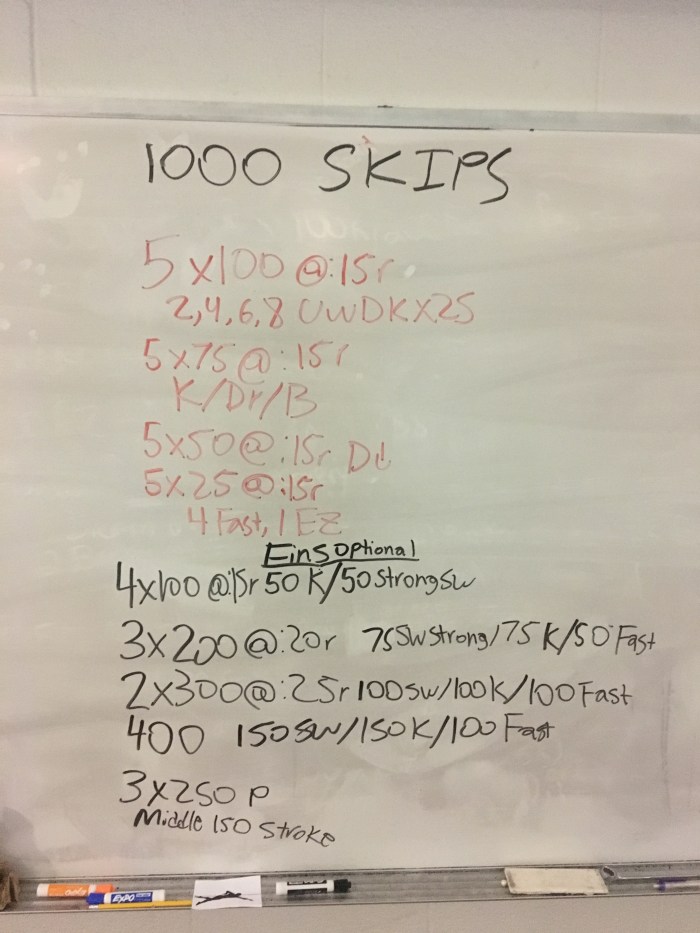 1000 SKIPS
5x100 @:15r
2,4,6,8 UWDKX25
5x75@:15r
K/Dr/B
5x50@:15r
5x25@:15r
4 Fast, 1 EZ
Fins Optional
4x100 @:15r 50 K/50 Strong sw
3x200@:20r 75 SW Strong/75 K/50 Fast
2x300@:25r 100 sw/100K/100 Fast
400 150 sw/150K/100 Fast
3x250 P
Middle 150 Stroke
EXPO